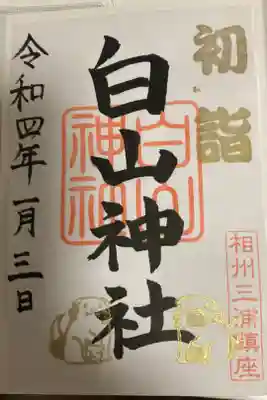 初詣
相州三浦鎮座
白山神社
白山
神社
令和四年一月三日